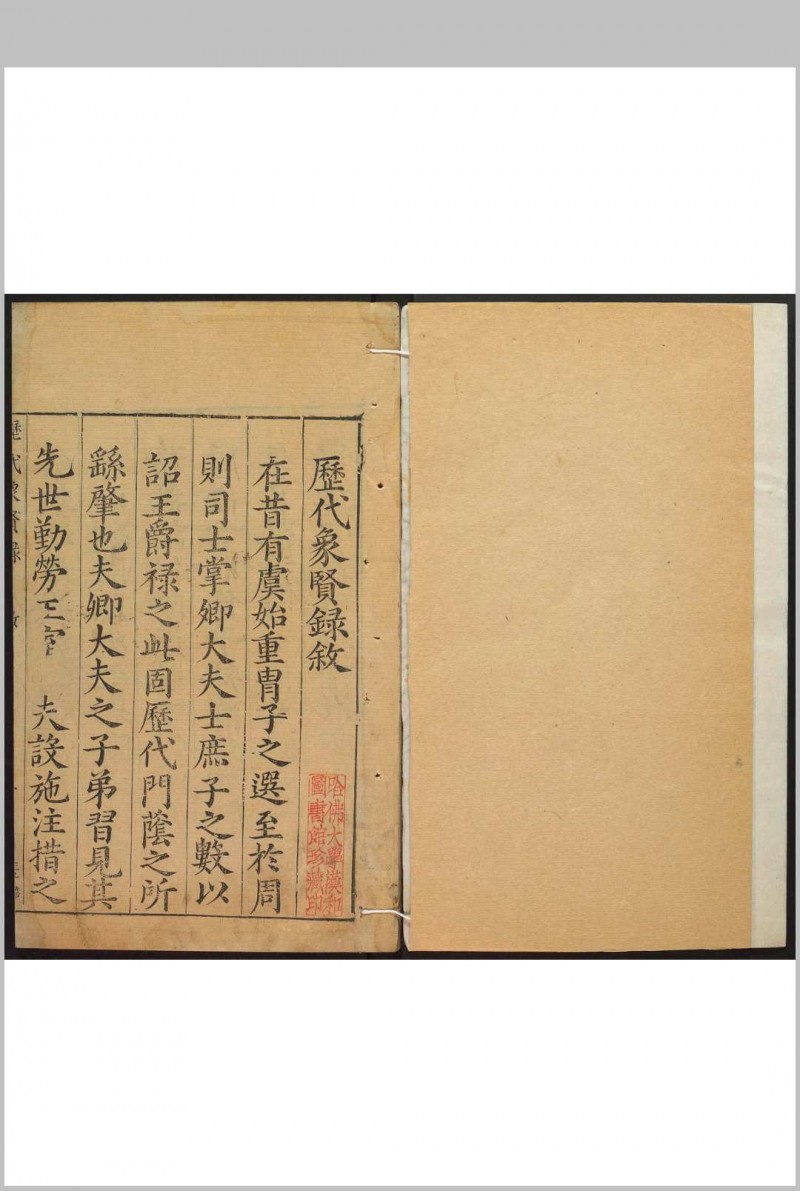 歷代象賢錄敘
在昔有虞始重胄子之選至於周
則司士掌卿大夫士庶子之數以
詔王爵祿之此固歷代門蔭之所
繇肇也夫卿大夫之子弟習見其
先世勤勞王室 夫設施注措之
歷代象賢錄
哈佛大學漢和
圖書館珍藏印